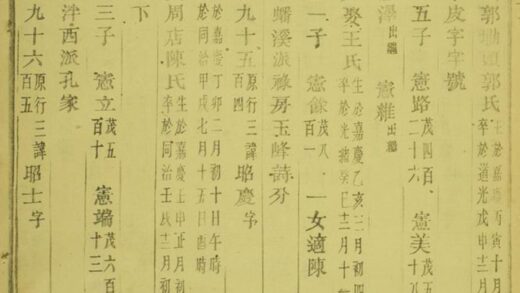 郭埔道郭氏 丙寅十月 卒於道光戊申十二
皮字字號
五子 憲路 茂四百二十六 憲美 茂五十九
出繼 憲雅 出繼
娶王氏 生於嘉慶乙亥二月初四 卒於光緒癸巳十二月十
一子 憲餘 茂八百一 一女適陳
蟠溪派祿房玉峰詩分
九十五 百四 原行三諱昭慶字
於嘉慶丁卯二月初十日午時 於同治甲戌七月十五日酉時
周店陳氏 生於嘉慶壬申正月初 卒於同治壬戌十二月初
下
三子 憲立 茂五百十 憲端 茂六百十三
泮西派孔家
九十六 百五 原行三諱昭士字